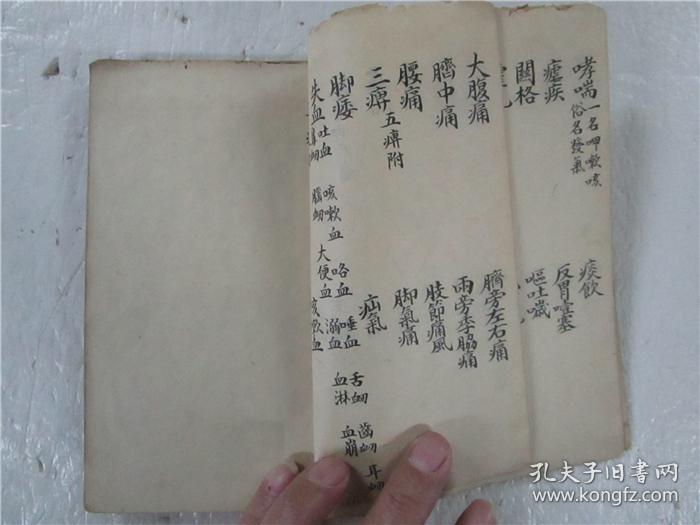 哮喘 一名呷嗽咳 俗名發氣
痰飲
瘧疾
反胃噎塞
關格
嘔吐噦
大腹痛
臍旁左右痛
臍中痛
兩旁季脇痛
腰痛
肢節痛風
三痺 五痺附
脚氣痛
脚痿
疝氣
失血 吐血
咳嗽血
咯血
唾血
舌衄
齒衄
耳衄
腦衄
大便血
溺血
血淋
血崩
孔夫子旧书网
www.kongfz.com